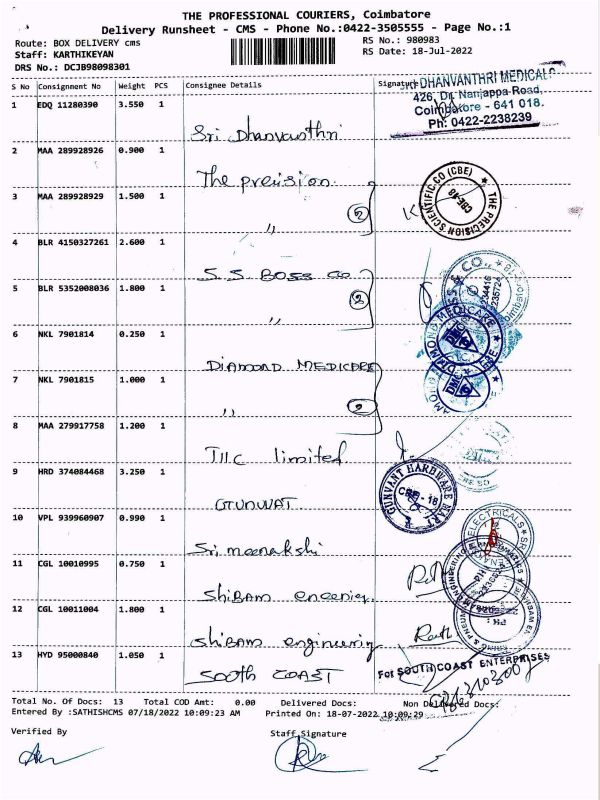 THE PROFESSIONAL COURIERS, Coimbatore
Delivery Runsheet - CMS - Phone No.:0422-3505555 - Page No.:1
Route: BOX DELIVERY cms
RS No.: 980983
Staff: KARTHIKEYAN
RS Date: 18-Jul-2022
DRS No.: DCJB98098301
S No Consignment No Weight PCS Consignee Details Signature
SRI DHANVANTHRI MEDICALS
426, Dr. Nanjappa Road,
Coimbatore - 641 018.
Ph: 0422-2238239
1 EDQ 11280390 3.550 1
Sri Dhanvanthri
2 MAA 289928926 0.900 1
The precision
THE PRECISION SCIENTIFIC CO (CBE)
CBE-18
3 MAA 289928929 1.500 1
〃 2
4 BLR 4150327261 2.600 1
S.S. BOSS Co
5 BLR 5352008036 1.800 1
〃 2
6 NKL 7901814 0.250 1
DIAMOND MEDICARE
DIAMOND MEDICARE
DMC
7 NKL 7901815 1.000 1
〃 2
DMC
8 MAA 279917758 1.200 1
limited
9 HRD 374084468 3.250 1
GUNWAT
GUNVANT HARDWARE MART
CBE - 18
10 VPL 939960907 0.990 1
Sri meenakshi
ELECTRICALS
11 CGL 10010995 0.750 1
Shibam
12 CGL 10011004 1.800 1
Shibam engineering
13 HYD 95000840 1.050 1
SOUTH COAST
For SOUTH COAST ENTERPRISES
Total No. Of Docs: 13 Total COD Amt: 0.00 Delivered Docs: Non Delivered Docs:
Entered By :SATHISHCMS 07/18/2022 10:09:23 AM Printed On: 18-07-2022 10:09:29
Verified By
Staff Signature